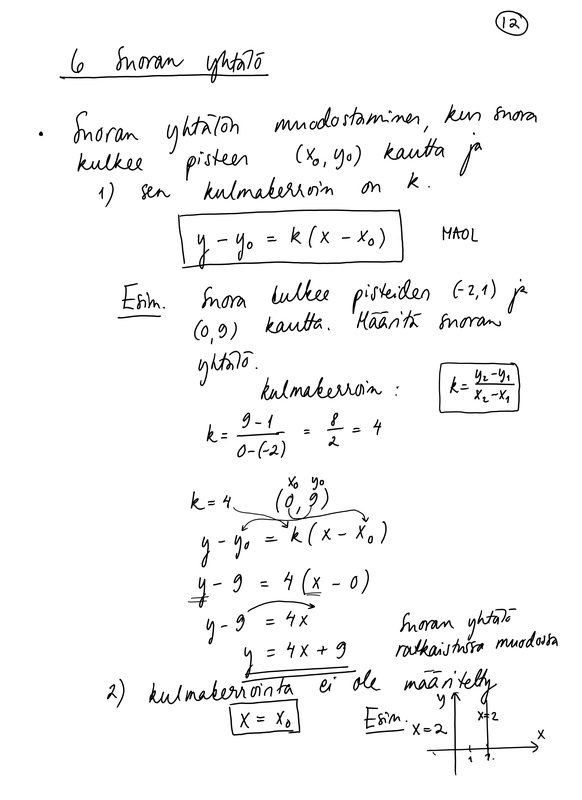 12
6 Suoran yhtälö
• Suoran yhtälön muodostaminen, kun suora
kulkee pisteen (x₀, y₀) kautta ja
1) sen kulmakerroin on k.
y - y₀ = k(x - x₀) MAOL
Esim. Suora kulkee pisteiden (-2,1) ja
(0,9) kautta. Määritä suoran
yhtälö.
kulmakerroin : k = (y₂-y₁)/(x₂-x₁)
k = (9-1)/(0-(-2)) = 8/2 = 4
x₀ y₀
k = 4 (0, 9)
y - y₀ = k(x - x₀)
y - 9 = 4(x - 0)
y - 9 = 4x
Suoran yhtälö
y = 4x + 9 ratkaistussa muodossa
2) kulmakerrointa ei ole määritelty
x = x₀ Esim. x = 2
y
x=2
x
1 2